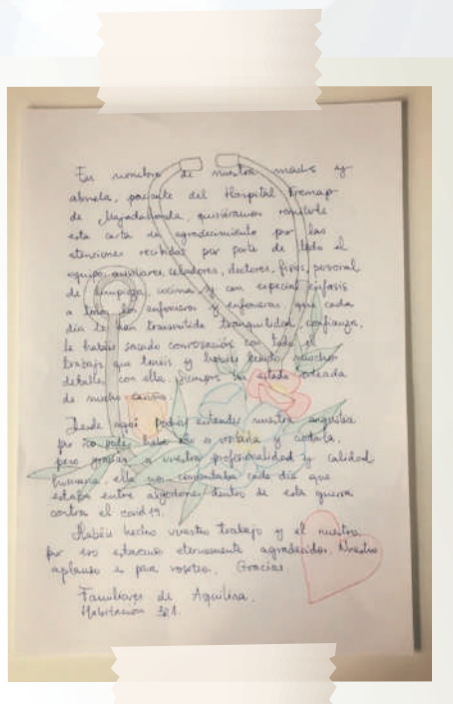 En nombre de nuestra madre y
abuela, paciente del Hospital Fremap
de Majadahonda, quisiéramos remitirle
esta carta de agradecimiento por las
atenciones recibidas por parte de todo el
equipo: auxiliares, celadores, doctores, fisios, personal
de limpieza, cocina y con especial énfasis
a todos los enfermeros y enfermeras, que cada
día le han transmitido tranquilidad, confianza,
le habéis sacado conversación con todo el
trabajo que tenéis y habéis tenido muchos
detalles con ella. Siempre ha estado rodeada
de mucho cariño.
Desde aquí podréis entender nuestra angustia
por no poder haber ido a visitarla y cuidarla,
pero gracias a vuestra profesionalidad y calidad
humana, ella nos comentaba cada día que
estaba entre algodones dentro de esta guerra
contra el covid 19.
Habéis hecho vuestro trabajo y el nuestro
por eso estaremos eternamente agradecidos. Nuestro
aplauso es para vosotros. Gracias
Familiares de Aquilina.
Habitación 321.